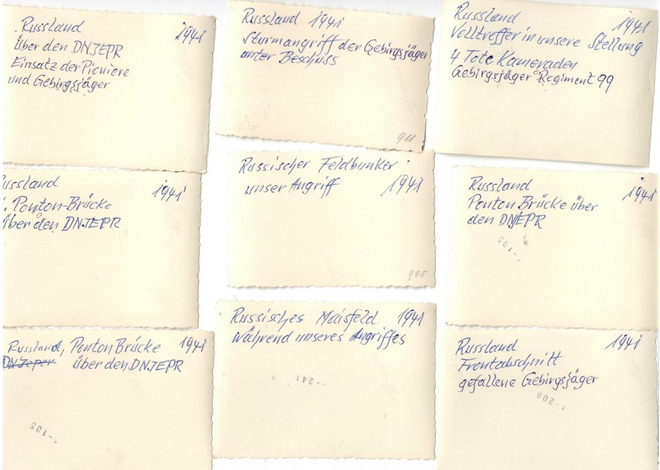 Russland 1941
über den DNJEPR
Einsatz der Pioniere
und Gebirgsjäger
Russland 1941
Sturmangriff der Gebirgsjäger
unter Beschuss
911
Russland 1941
Volltreffer in unsere Stellung
4 Tote Kameraden
Gebirgsjäger Regiment 99
Russland 1941
Ponton-Brücke
über den DNJEPR
Russischer Feldbunker
unser Angriff 1941
Russland 1941
Ponton Brücke über
den DNJEPR
Russland, Ponton Brücke 1941
über den DNJEPR
Russisches Maisfeld 1941
während unseres Angriffes
-241
Russland 1941
Frontabschnitt
gefallene Gebirgsjäger